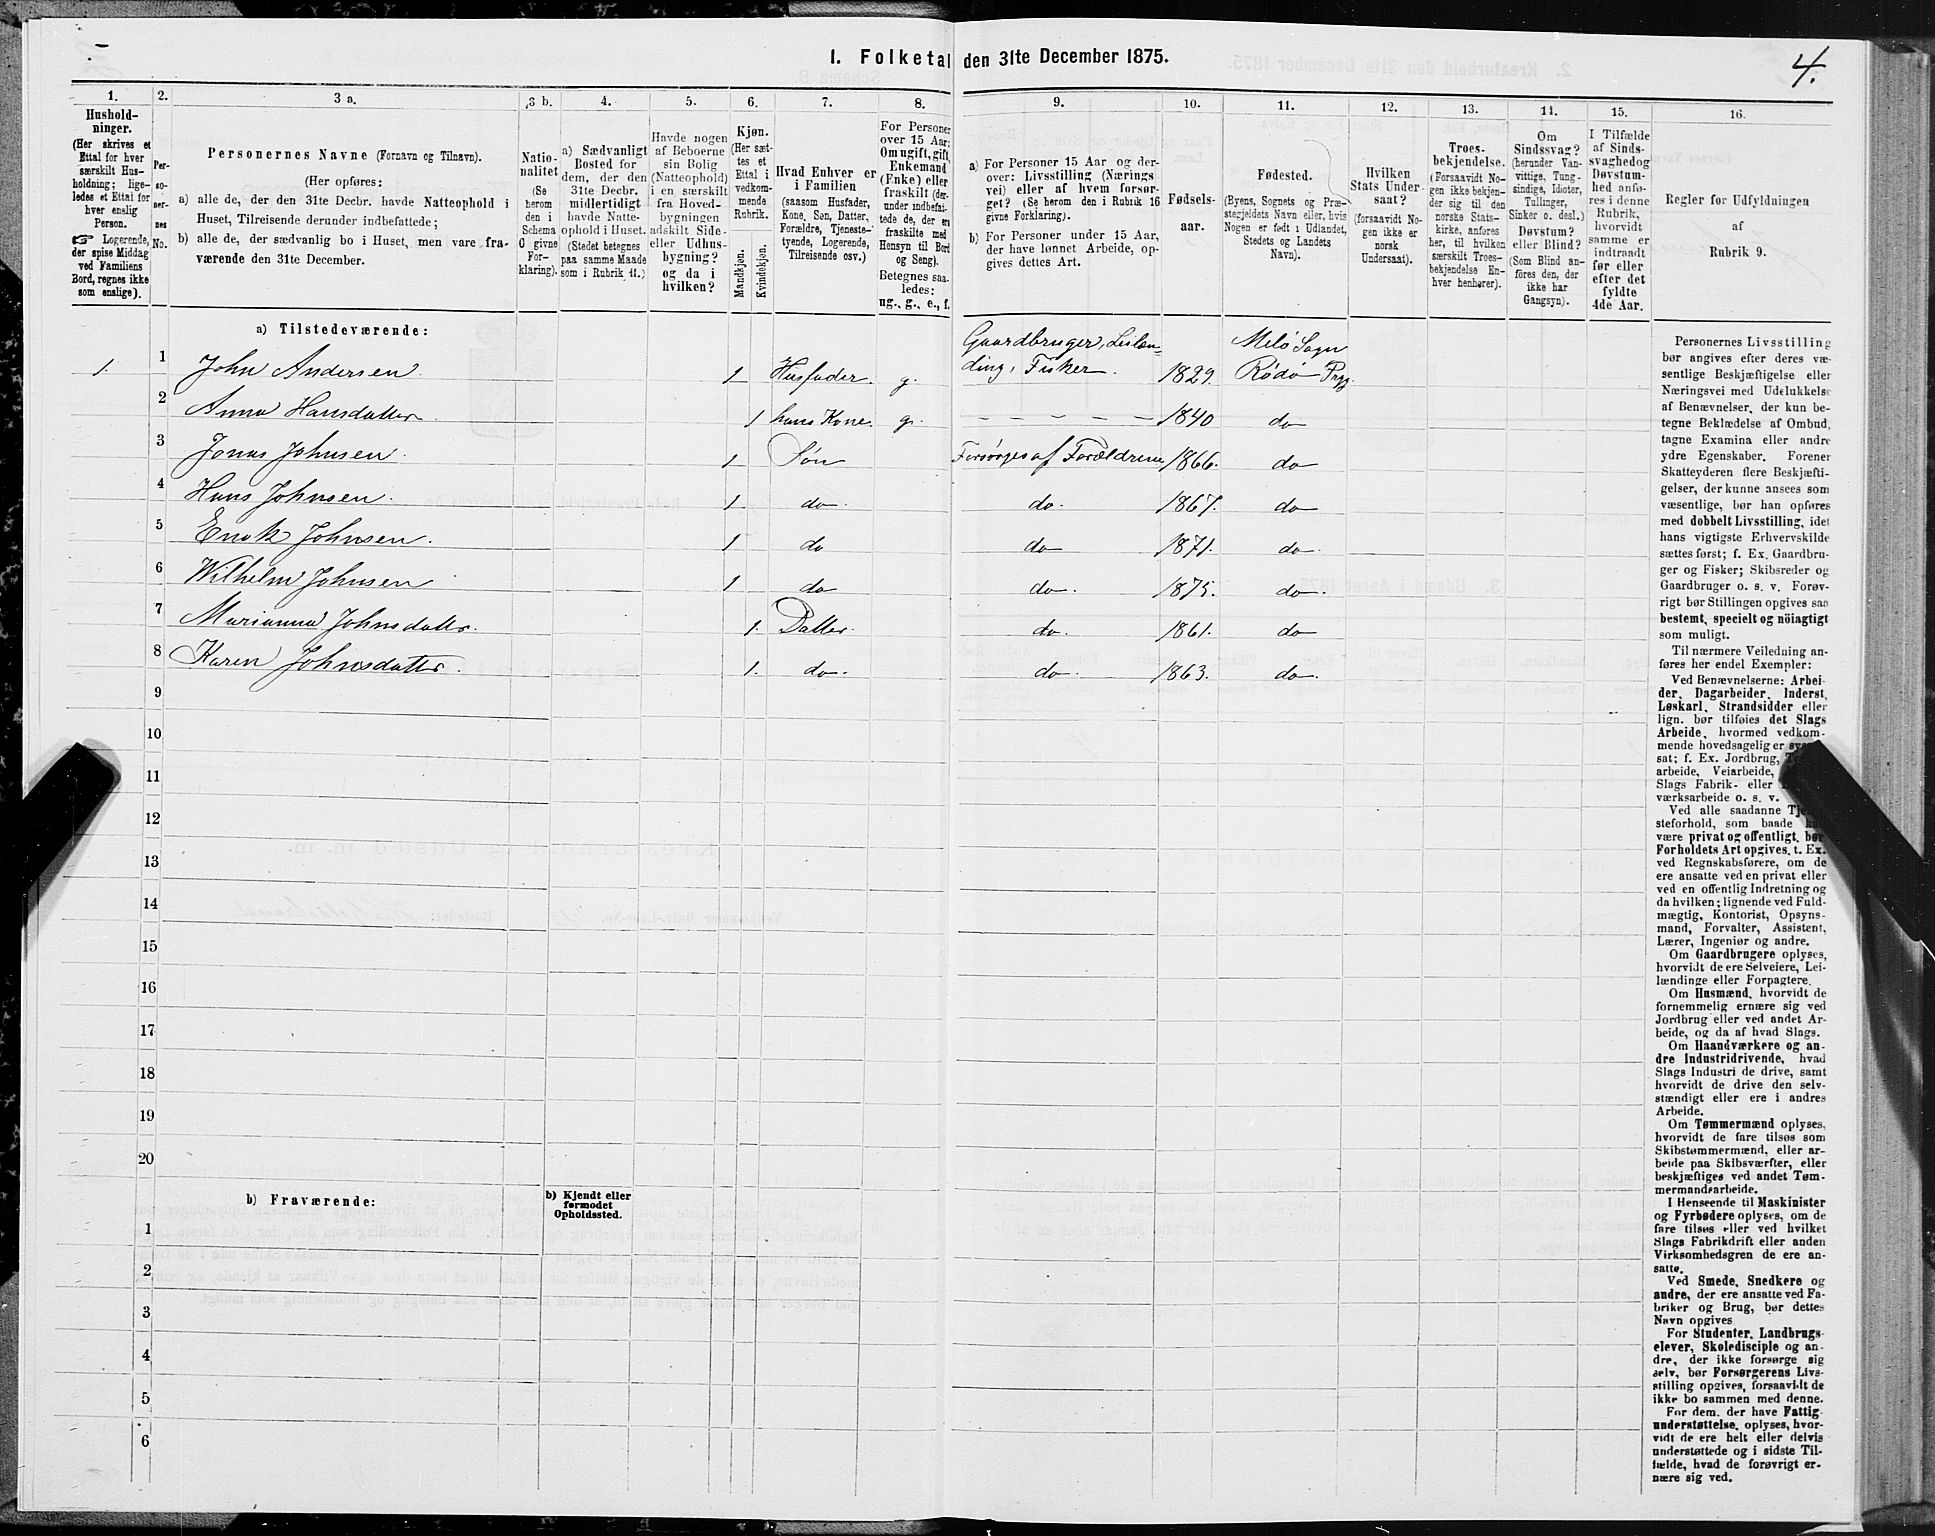 I. Folketal den 31te December 1875.
4.
1.
Hushold-
ninger.
(Her skrives et
Ettal for hver
særskilt Hus-
holdning; lige-
ledes et Ettal for
hver enslig
Person.
☞ Logerende,
der spise Middag
ved Familiens
Bord, regnes ikke
som enslige).
2.
Per-
so-
ner-
nes
No.
3 a.
Personernes Navne (Fornavn og Tilnavn).
(Her opføres:
a) alle de, der den 31te Decbr. havde Natteophold i
Huset, Tilreisende derunder indbefattede;
b) alle de, der sædvanlig bo i Huset, men vare fra-
værende den 31te December.
3 b.
Natio-
nalitet
(Se
herom
den i
Schema
C givne
For-
klaring).
4.
a) Sædvanligt
Bosted for
dem, der den
31te Decbr.
midlertidigt
havde Natte-
ophold i Huset.
(Stedet betegnes
paa samme Maade
som i Rubrik 11.)
5.
Havde nogen
af Beboerne
sin Bolig
(Natteophold)
i en særskilt
fra Hoved-
bygningen
adskilt Side-
eller Udhus-
bygning?
og da i
hvilken?
6.
Kjøn.
(Her sæt-
tes et
Ettal i
vedkom-
mende
Rubrik.
Mandkjøn.
Kvindekjøn.
7.
Hvad Enhver er
i Familien
(saasom Husfader,
Kone, Søn, Datter,
Forældre, Tjeneste-
tyende, Logerende,
Tilreisende osv.)
8.
For Personer
over 15 Aar:
Om ugift, gift,
Enkemand
(Enke) eller
fraskilt (der-
under indbefat-
tede de, der ere
fraskilte med
Hensyn til Bord
og Seng).
Betegnes saa-
ledes:
ug., g., e., f.
9.
a) For Personer 15 Aar og der-
over: Livsstilling (Nærings-
vei) eller af hvem forsør-
get? (Se herom den i Rubrik 16
givne Forklaring).
b) For Personer under 15 Aar,
der have lønnet Arbeide, op-
gives dettes Art.
10.
Fødsels-
aar.
11.
Fødested.
(Byens, Sognets og Præ-
stegjeldets Navn eller, hvis
Nogen er født i Udlandet,
Stedets og Landets
Navn).
12.
Hvilken
Stats Under-
saat?
(forsaavidt No-
gen ikke er
norsk
Undersaat).
13.
Troes-
bekjendelse.
(Forsaavidt No-
gen ikke bekjen-
der sig til den
norske Stats-
kirke, anføres
her, til hvilken
særskilt Troes-
bekjendelse En-
hver henhører).
14.
Om
Sindssvag?
(herunder Van-
vittige, Tung-
sindige, Idioter,
Tullinger,
Sinker o. desl.)
Døvstum?
eller Blind?
(Som Blind an-
føres den, der
ikke har
Gangsyn).
15.
I Tilfælde
af Sinds-
svaghed og
Døvstum-
hed anfø-
res i denne
Rubrik,
hvorvidt
samme er
indtraadt
før eller
efter det
fyldte
4de Aar.
16.
Regler for Udfyldningen
af
Rubrik 9.
a) Tilstedeværende:
1. 1 John Andersen. 1 Husfader. g. Gaardbruger, Leilæn-
ding, Fisker. 1829. Melø Sogn
Rødø Prgj.
2 Anna Hansdatter 1 hans Kone. g. — — — — — 1840 do
3 Jonas Johnsen. 1 Søn Forsørges af Forældrene 1866. do
4 Hans Johnsen. 1 do. do. 1867. do
5 Enok Johnsen. 1 do do 1871. do.
6 Wilhelm Johnsen 1 do do. 1875. do.
7 Marianna Johnsdatter. 1. Datter. do. 1861. do
8 Karen Johnsdatter. 1. do. do. 1863. do.
9
10
11
12
13
14
15
16
17
18
19
20
b) Fraværende:
b) Kjendt eller
formodet
Opholdssted.
1
2
3
4
5
6
Personernes Livsstilling
bør angives efter deres væ-
sentlige Beskjæftigelse eller
Næringsvei med Udelukkelse
af Benævnelser, der kun be-
tegne Beklædelse af Ombud,
tagne Examina eller andre
ydre Egenskaber. Forener
Skatteyderen flere Beskjæfti-
gelser, der kunne ansees som
væsentlige, bør han opføres
med dobbelt Livsstilling, idet
hans vigtigste Erhvervskilde
sættes først; f. Ex. Gaardbru-
ger og Fisker; Skibsreder og
Gaardbruger o. s. v. Forøv-
rigt bør Stillingen opgives saa
bestemt, specielt og nöiagtigt
som muligt.
Til nærmere Veiledning an-
føres her endel Exempler:
Ved Benævnelserne: Arbei-
der, Dagarbeider, Inderst,
Løskarl, Strandsidder eller
lign. bør tilføies det Slags
Arbeide, hvormed vedkom-
mende hovedsagelig er
sat; f. Ex. Jordbrug,
arbeide, Veiarbeide,
Slags Fabrik- eller
værksarbeide o. s. v.
Ved alle saadanne
steforhold, som baade
være privat og offentligt, bør
Forholdets Art opgives, t. Ex.
ved Regnskabsførere, om de
ere ansatte ved en privat eller
ved en offentlig Indretning og
da hvilken; lignende ved Fuld-
mægtig, Kontorist, Opsyns-
mand, Forvalter, Assistent,
Lærer, Ingeniør og andre.
Om Gaardbrugere oplyses,
hvorvidt de ere Selveiere, Lei-
lændinge eller Forpagtere.
Om Husmænd, hvorvidt de
fornemmelig ernære sig ved
Jordbrug eller ved andet Ar-
beide, og da af hvad Slags.
Om Haandværkere og an-
dre Industridrivende, hvad
Slags Industri de drive, samt
hvorvidt de drive den selv-
stændigt eller ere i andres
Arbeide.
Om Tømmermænd oplyses,
hvorvidt de fare tilsøs som
Skibstømmermænd, eller ar-
beide paa Skibsværfter, eller
beskjæftiges ved andet Tøm-
mermandsarbeide.
I Henseende til Maskinister
og Fyrbødere oplyses, om de
fare tilsøs eller ved hvilket
Slags Fabrikdrift eller anden
Virksomhedsgren de ere an-
satte.
Ved Smede, Snedkere og
andre, der ere ansatte ved Fa-
briker og Brug, bør dettes
Navn opgives
For Studenter, Landbrugs-
elever, Skoledisciple og an-
dre, der ikke forsørge sig
selv, bør Forsørgerens Livs-
stilling opgives, forsaavidt de
ikke bo sammen med denne.
For dem, der have Fattig-
understøttelse, oplyses, hvor-
vidt de ere helt eller delvis
understøttede og i sidste Til-
fælde, hvad de forøvrigt er-
nære sig ved.